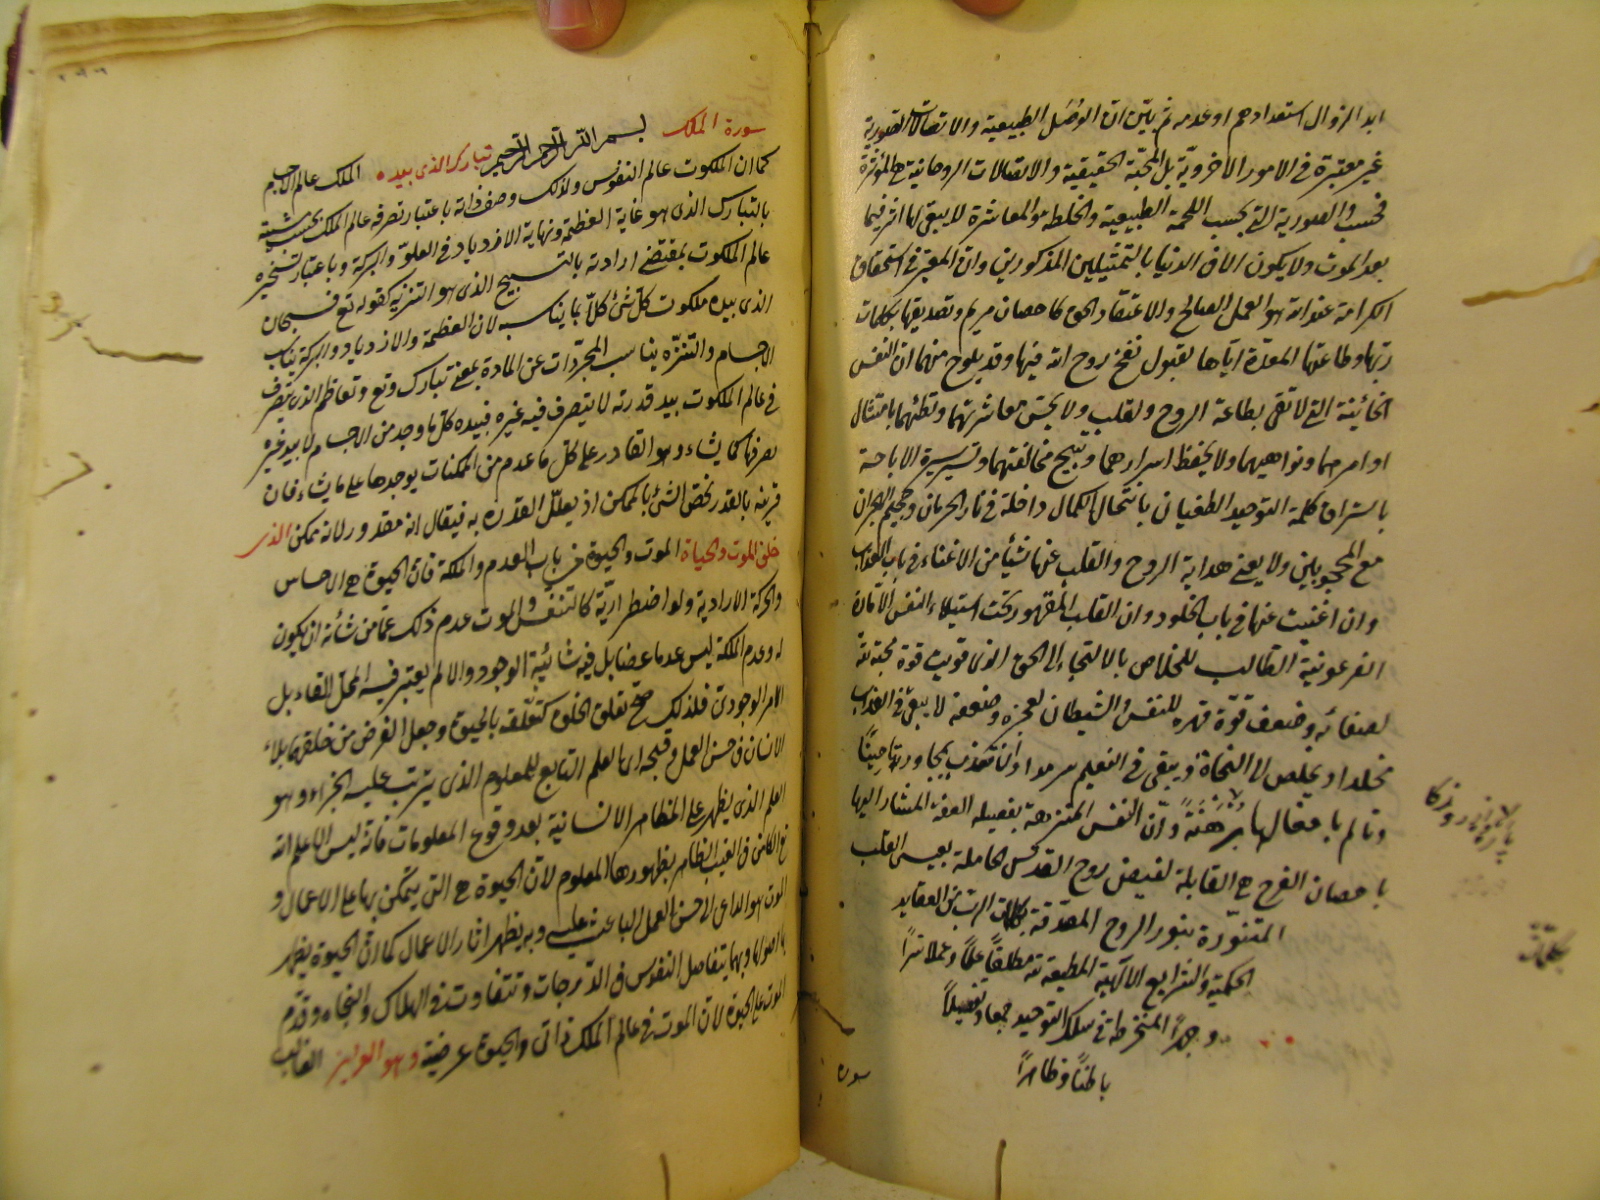 ابد الزوال استعدادهم او عدمه ثم بيّن ان الوصل الطبيعية والاتصالات الصورية
غير معتبرة في الامور الاخروية بل المحبّة الحقيقية والاتصالات الروحانية هي المؤثرة
فحسب والصورية التي بحسب اللحمة الطبيعية والخلطة والمعاشرة لا يبقى لها اثر فيما
بعد الموت ولا يكون الا في الدنيا بالتمثيلين المذكورين وان المعتبر في استحقاق
الكرامة عند الله هو العمل الصالح والاعتقاد الحق كاحصان مريم وتصديقها بكلمات
ربها وطاعتها المعدّة اياها لقبول نفخ روح الله فيها وقد يلوح منهما ان النفس
الخائنة التي لا تفي بطاعة الروح والقلب ولا يحسن معاشرتهما وتطيعهما بامتثال
اوامرهما ونواهيهما ولا يحفظ اسرارهما وتبيح مخالفتهما وتسير سيرة الاباحة
باستراق كلمة التوحيد والطغيان بانتحال الكمال داخلة في نار الحرمان وجحيم الهجران
مع المحجوبين ولا يغني هداية الروح والقلب عنها شيئا من الاغناء في باب العذاب
وان اغنيت عنها في باب الخلود وان القلب المقهور تحت استيلاء النفس الامّارة
الفرعونية الطالب للخلاص بالالتجاء الى الحق الذي قويت قوة محبته لله
لصفائه وضعف قوة قهره للنفس والشيطان لعجزه وضعفه لا يبقى في العذاب
مخلدا ويخلص الى النجاة ويبقى في النعيم سرمدا وان تعذب بمجاورتها حينًا
وتألم بافعالها برهةً وانّ النفس المتزينة بفضيلة العفة المشار اليها
باحصان الفرج هي القابلة لفيض روح القدس الحاملة بعيسى القلب
المتنورة بنور الروح المصدّقة بكلمات الرب من العقايد
الحكمية والشرايع الالهية المطيعة لله مطلقا علمًا وعملا سرًا
وجهرًا المنخرطة في سلك التوحيد جمعا وتفصيلاً
باطنًا وظاهرًا
سورة
سورة الملك بسم الله الرحمن الرحيم تبارك الذي بيده الملك عالم الاجسام
كما ان الملكوت عالم النفوس ولذلك وصف ذاته باعتبار تصرفه عالم الملك بحسب مشيته
بالتبارك الذي هو غاية العظمة ونهاية الازدياد في العلو والبركة وباعتبار تسخيره
عالم الملكوت بمقتضى ارادته بالتسبيح الذي هو التنزيه كقوله تع فسبحان
الذي بيده ملكوت كل شئ كلًّا بما يناسبه لان العظمة والازدياد والبركة يناسب
الاجسام والتنزّه يناسب المجردات عن المادة بمعنى تبارك وتع وتعاظم الذي يتصرف
في عالم الملكوت بيد قدرته لا يتصرف فيه غيره فبيده كل ما وجد من الاجسام لا بيد غيره
يصرفها كما يشاء وهو القادر على كل ما عدم من الممكنات يوجدها على ما يشاء فان
قرينة بالقدر تخص الشئ بالممكن اذ يعلّل القدرة به فيقال انه مقدور لانه ممكن الذي
خلق الموت والحياة الموت والحيوة من باب العدم والملكة فان الحيوة هي الاحساس
والحركة الارادية ولو اضطرارية كالتنفس والموت عدم ذلك عمّا من شأنه ان يكون
له وعدم الملكة ليس عدما محضا بل فيه شائبة الوجود والا لم يعتبر فيه المحل القابل
للامر الوجودي فلذلك صح تعلق الخلق كتعلقه بالحيوة وجعل الغرض من خلقهما بلاء
الانسان في حسن العمل وقبحه اي العلم التابع للمعلوم الذي يترتب عليه الجزاء وهو
العلم الذي يظهر على المظاهر الانسانية بعد وقوع المعلومات فانه ليس الا علم الله
تع الكامن في الغيب الظاهر بظهورها المعلوم لان الحيوة هي التي يتمكن بها على الاعمال و
الموت هو الداعي الى حسن العمل الباعث عليه وبه يظهر اثار الاعمال كما ان الحيوة يظهر
بها اصولها وبهما يتفاضل النفوس في الدرجات وتتفاوت في الهلاك والنجاة وقدّم
الموت على الحيوة لان الموت في عالم الملك ذاتي والحيوة عرضية وهو العزيز الغالب